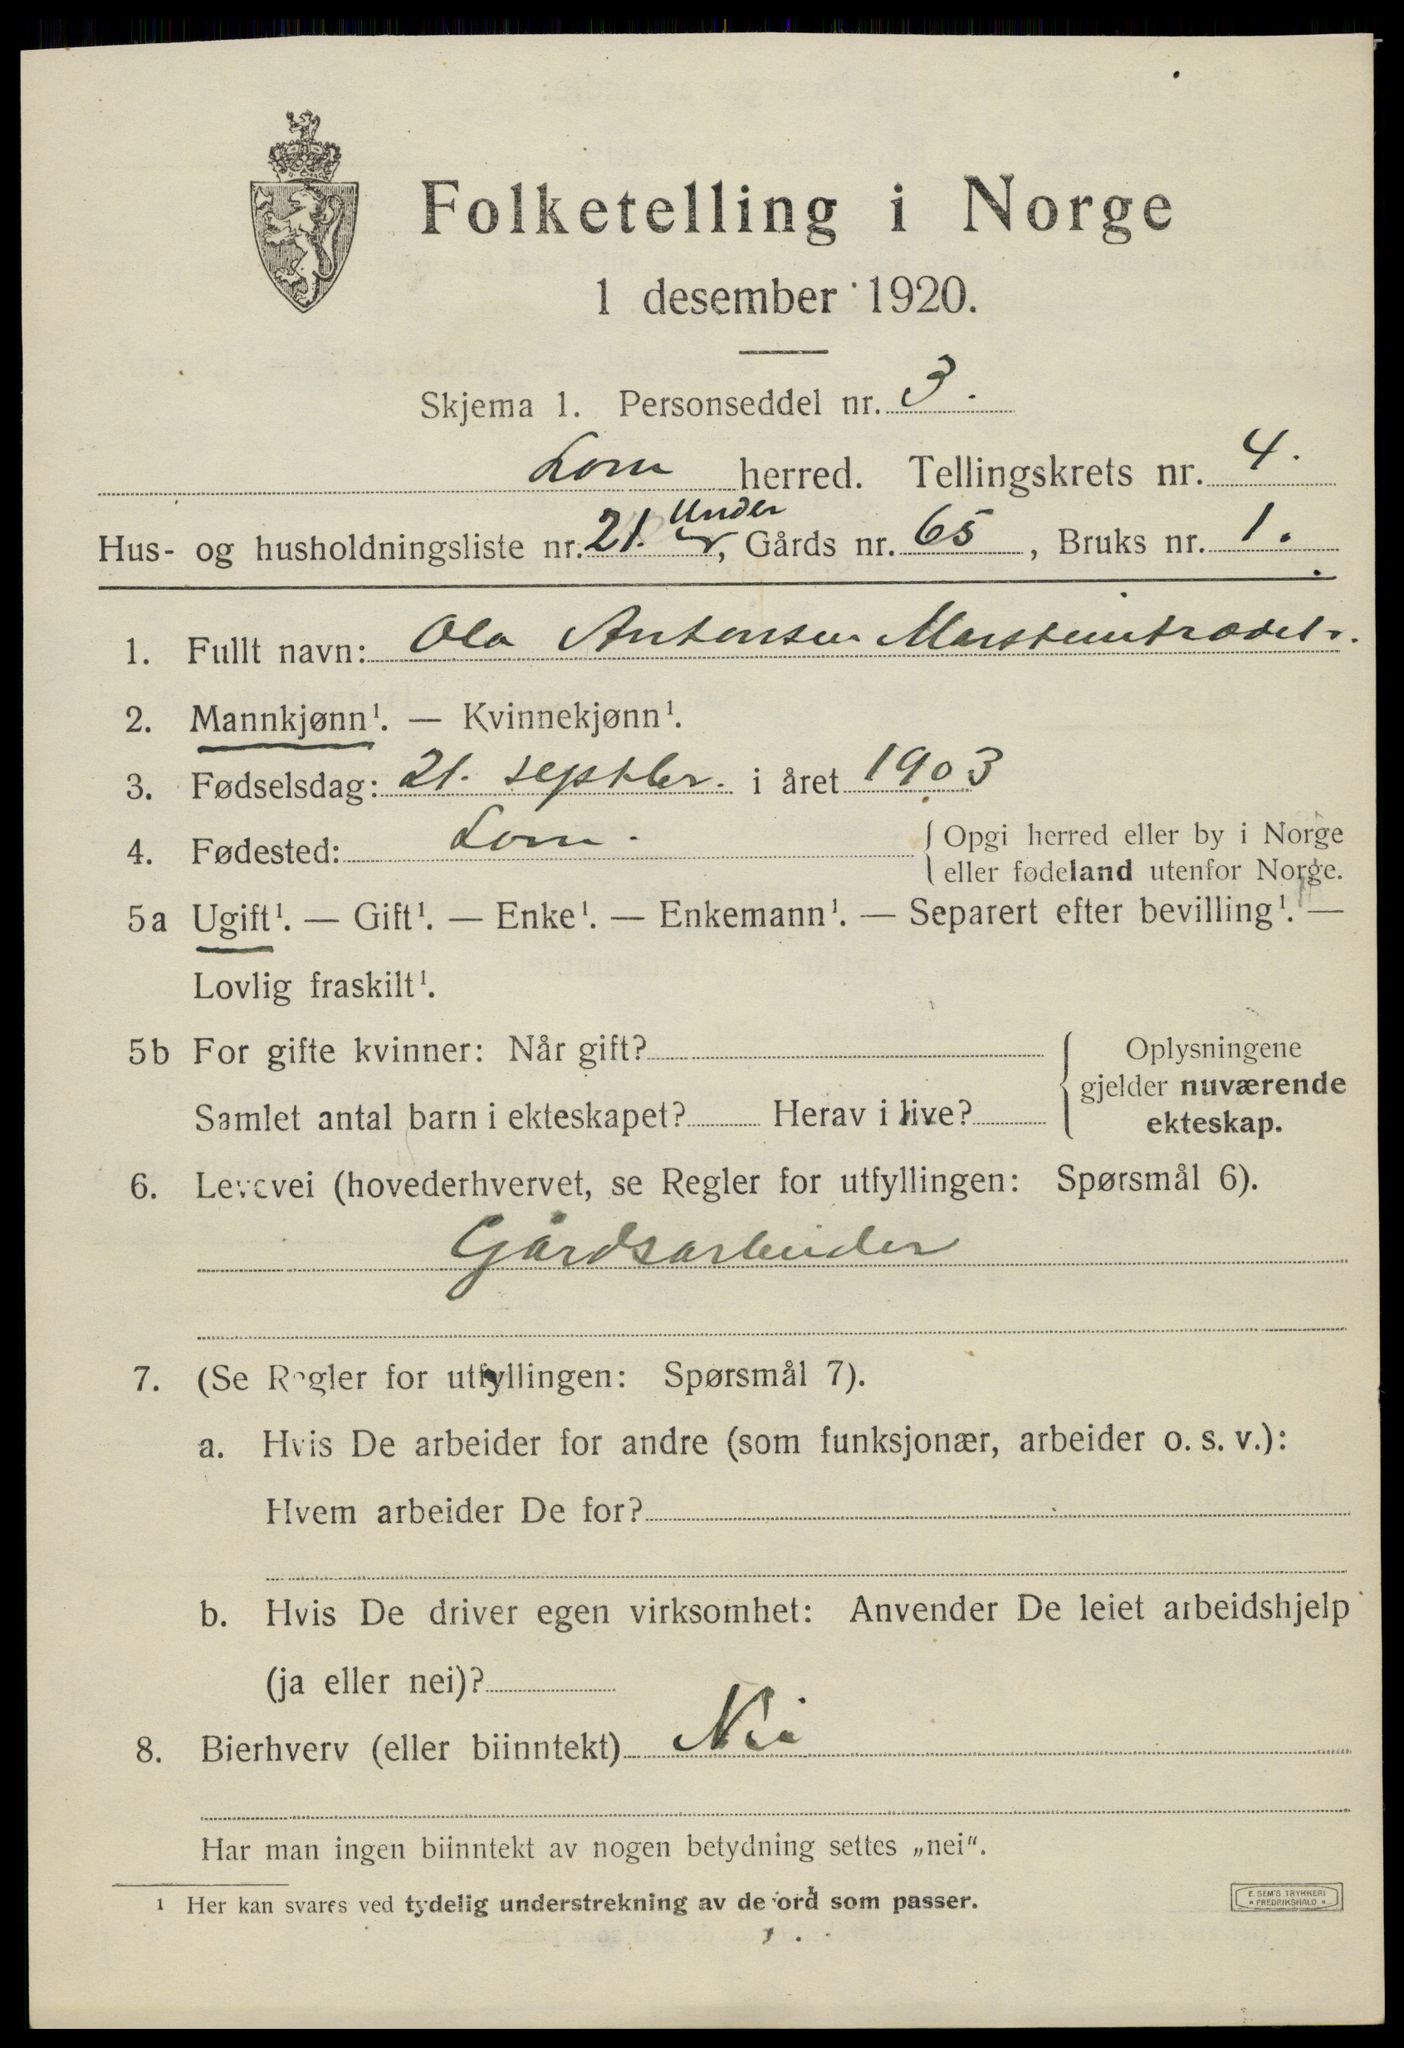 Folketelling i Norge
1 desember 1920.
Skjema 1. Personseddel nr. 3.
Lom herred. Tellingskrets nr. 4.
Under
Hus- og husholdningsliste nr. 21. , Gårds nr. 65, Bruks nr. 1.
1. Fullt navn: Ola Antonsen Marsteintrædet.
2. Mannkjønn¹. — Kvinnekjønn¹.
3. Fødselsdag: 21. septbr. i året 1903
4. Fødested: Lom. { Opgi herred eller by i Norge
eller fødeland utenfor Norge.
5a Ugift¹. — Gift¹. — Enke¹. — Enkemann¹. — Separert efter bevilling¹. —
Lovlig fraskilt¹.
5b For gifte kvinner: Når gift? { Oplysningene
gjelder nuværende
Samlet antal barn i ekteskapet? Herav i live? ekteskap.
6. Levevei (hovederhvervet, se Regler for utfyllingen: Spørsmål 6).
Gårdsarbeider
7. (Se Regler for utfyllingen: Spørsmål 7).
a. Hvis De arbeider for andre (som funksjonær, arbeider o. s. v.):
Hvem arbeider De for?
b. Hvis De driver egen virksomhet: Anvender De leiet arbeidshjelp
(ja eller nei)?
8. Bierhverv (eller biinntekt) Nei
Har man ingen biinntekt av nogen betydning settes „nei".
¹ Her kan svares ved tydelig understrekning av de ord som passer.
E. SEM'S TRYKKERI
* FREDRIKSHALD *